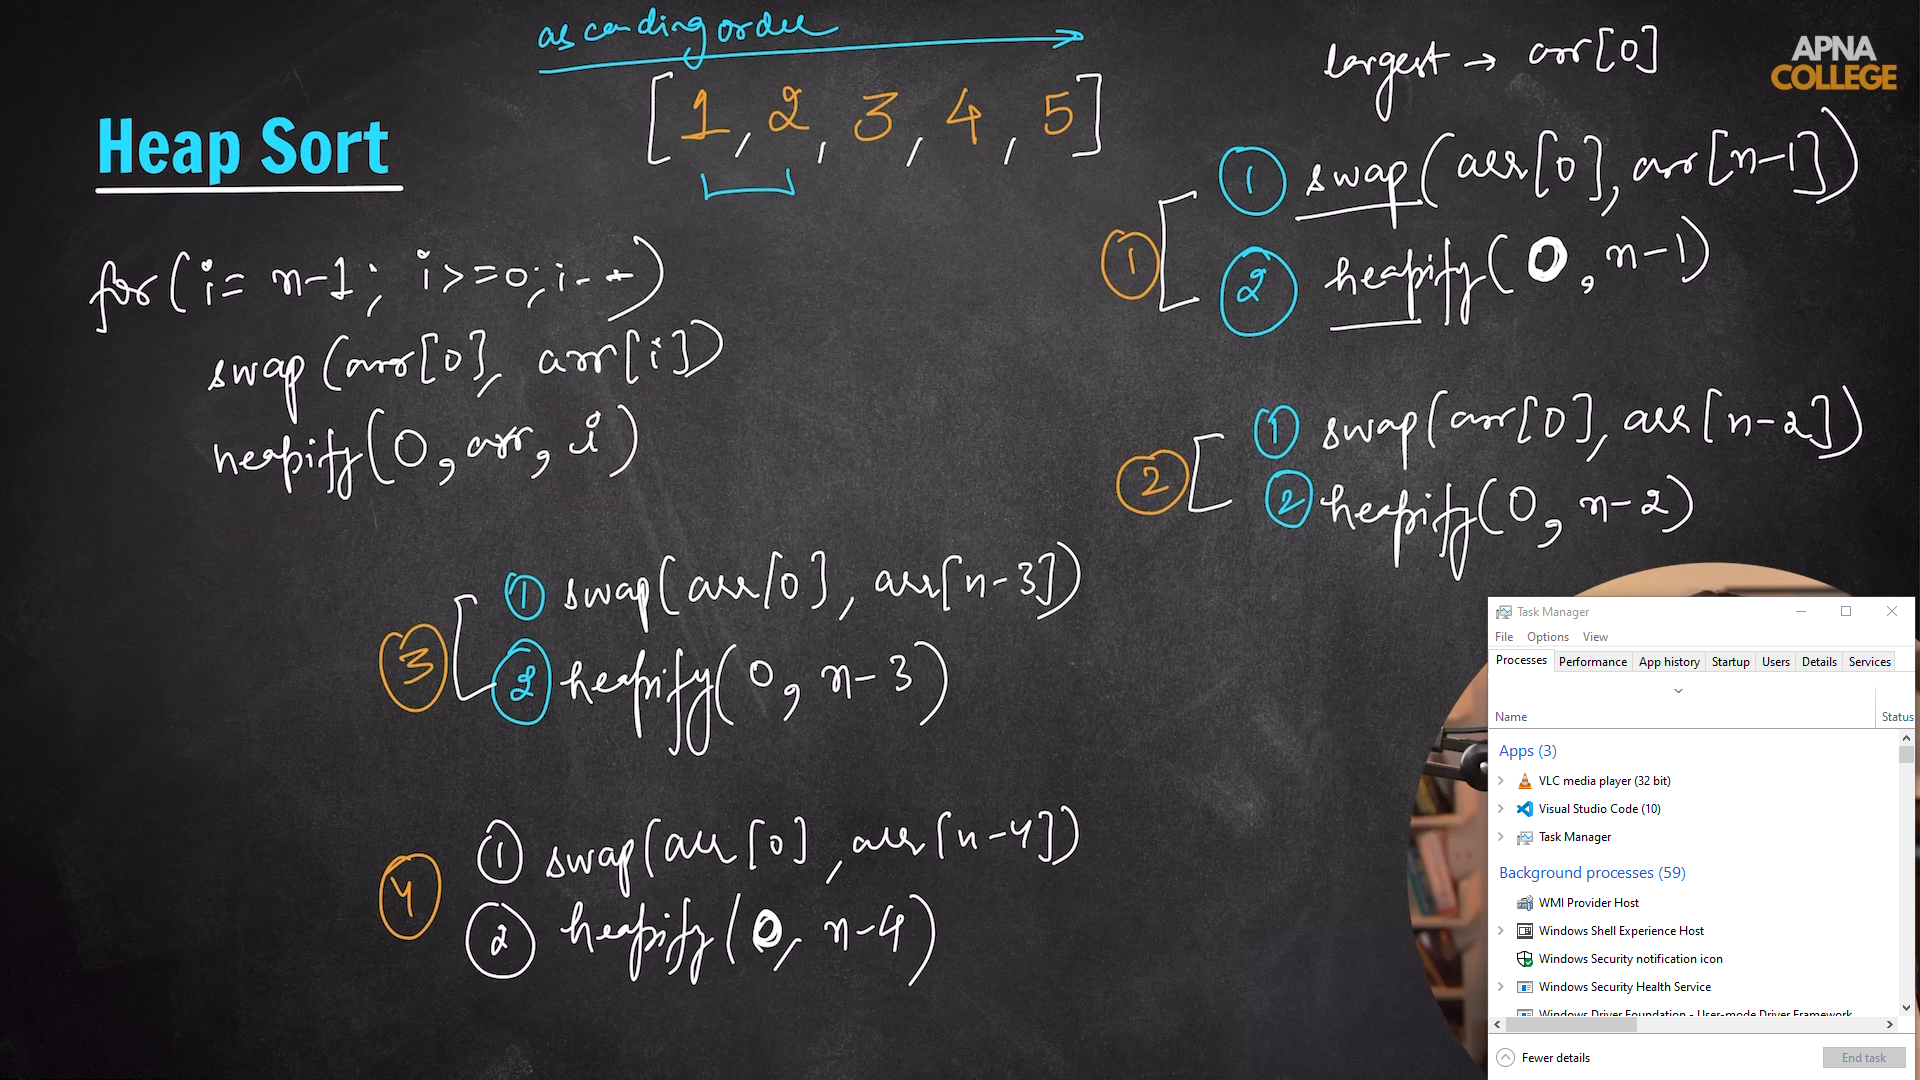 ascending order
[1, 2, 3, 4, 5]
largest → arr[0]
APNA
COLLEGE
Heap Sort
for(i= n-1; i>=0; i--)
swap(arr[0], arr[i])
heapify(0, arr, i)
1
1 swap(arr[0], arr[n-1])
2 heapify(0, n-1)
2
1 swap(arr[0], arr[n-2])
2 heapify(0, n-2)
3
1 swap(arr[0], arr[n-3])
2 heapify(0, n-3)
4
1 swap(arr[0], arr[n-4])
2 heapify(0, n-4)
Task Manager
File Options View
Processes Performance App history Startup Users Details Services
Name Status
Apps (3)
VLC media player (32 bit)
Visual Studio Code (10)
Task Manager
Background processes (59)
WMI Provider Host
Windows Shell Experience Host
Windows Security notification icon
Windows Security Health Service
Windows Driver Foundation - User-mode Driver Framework
Fewer details End task